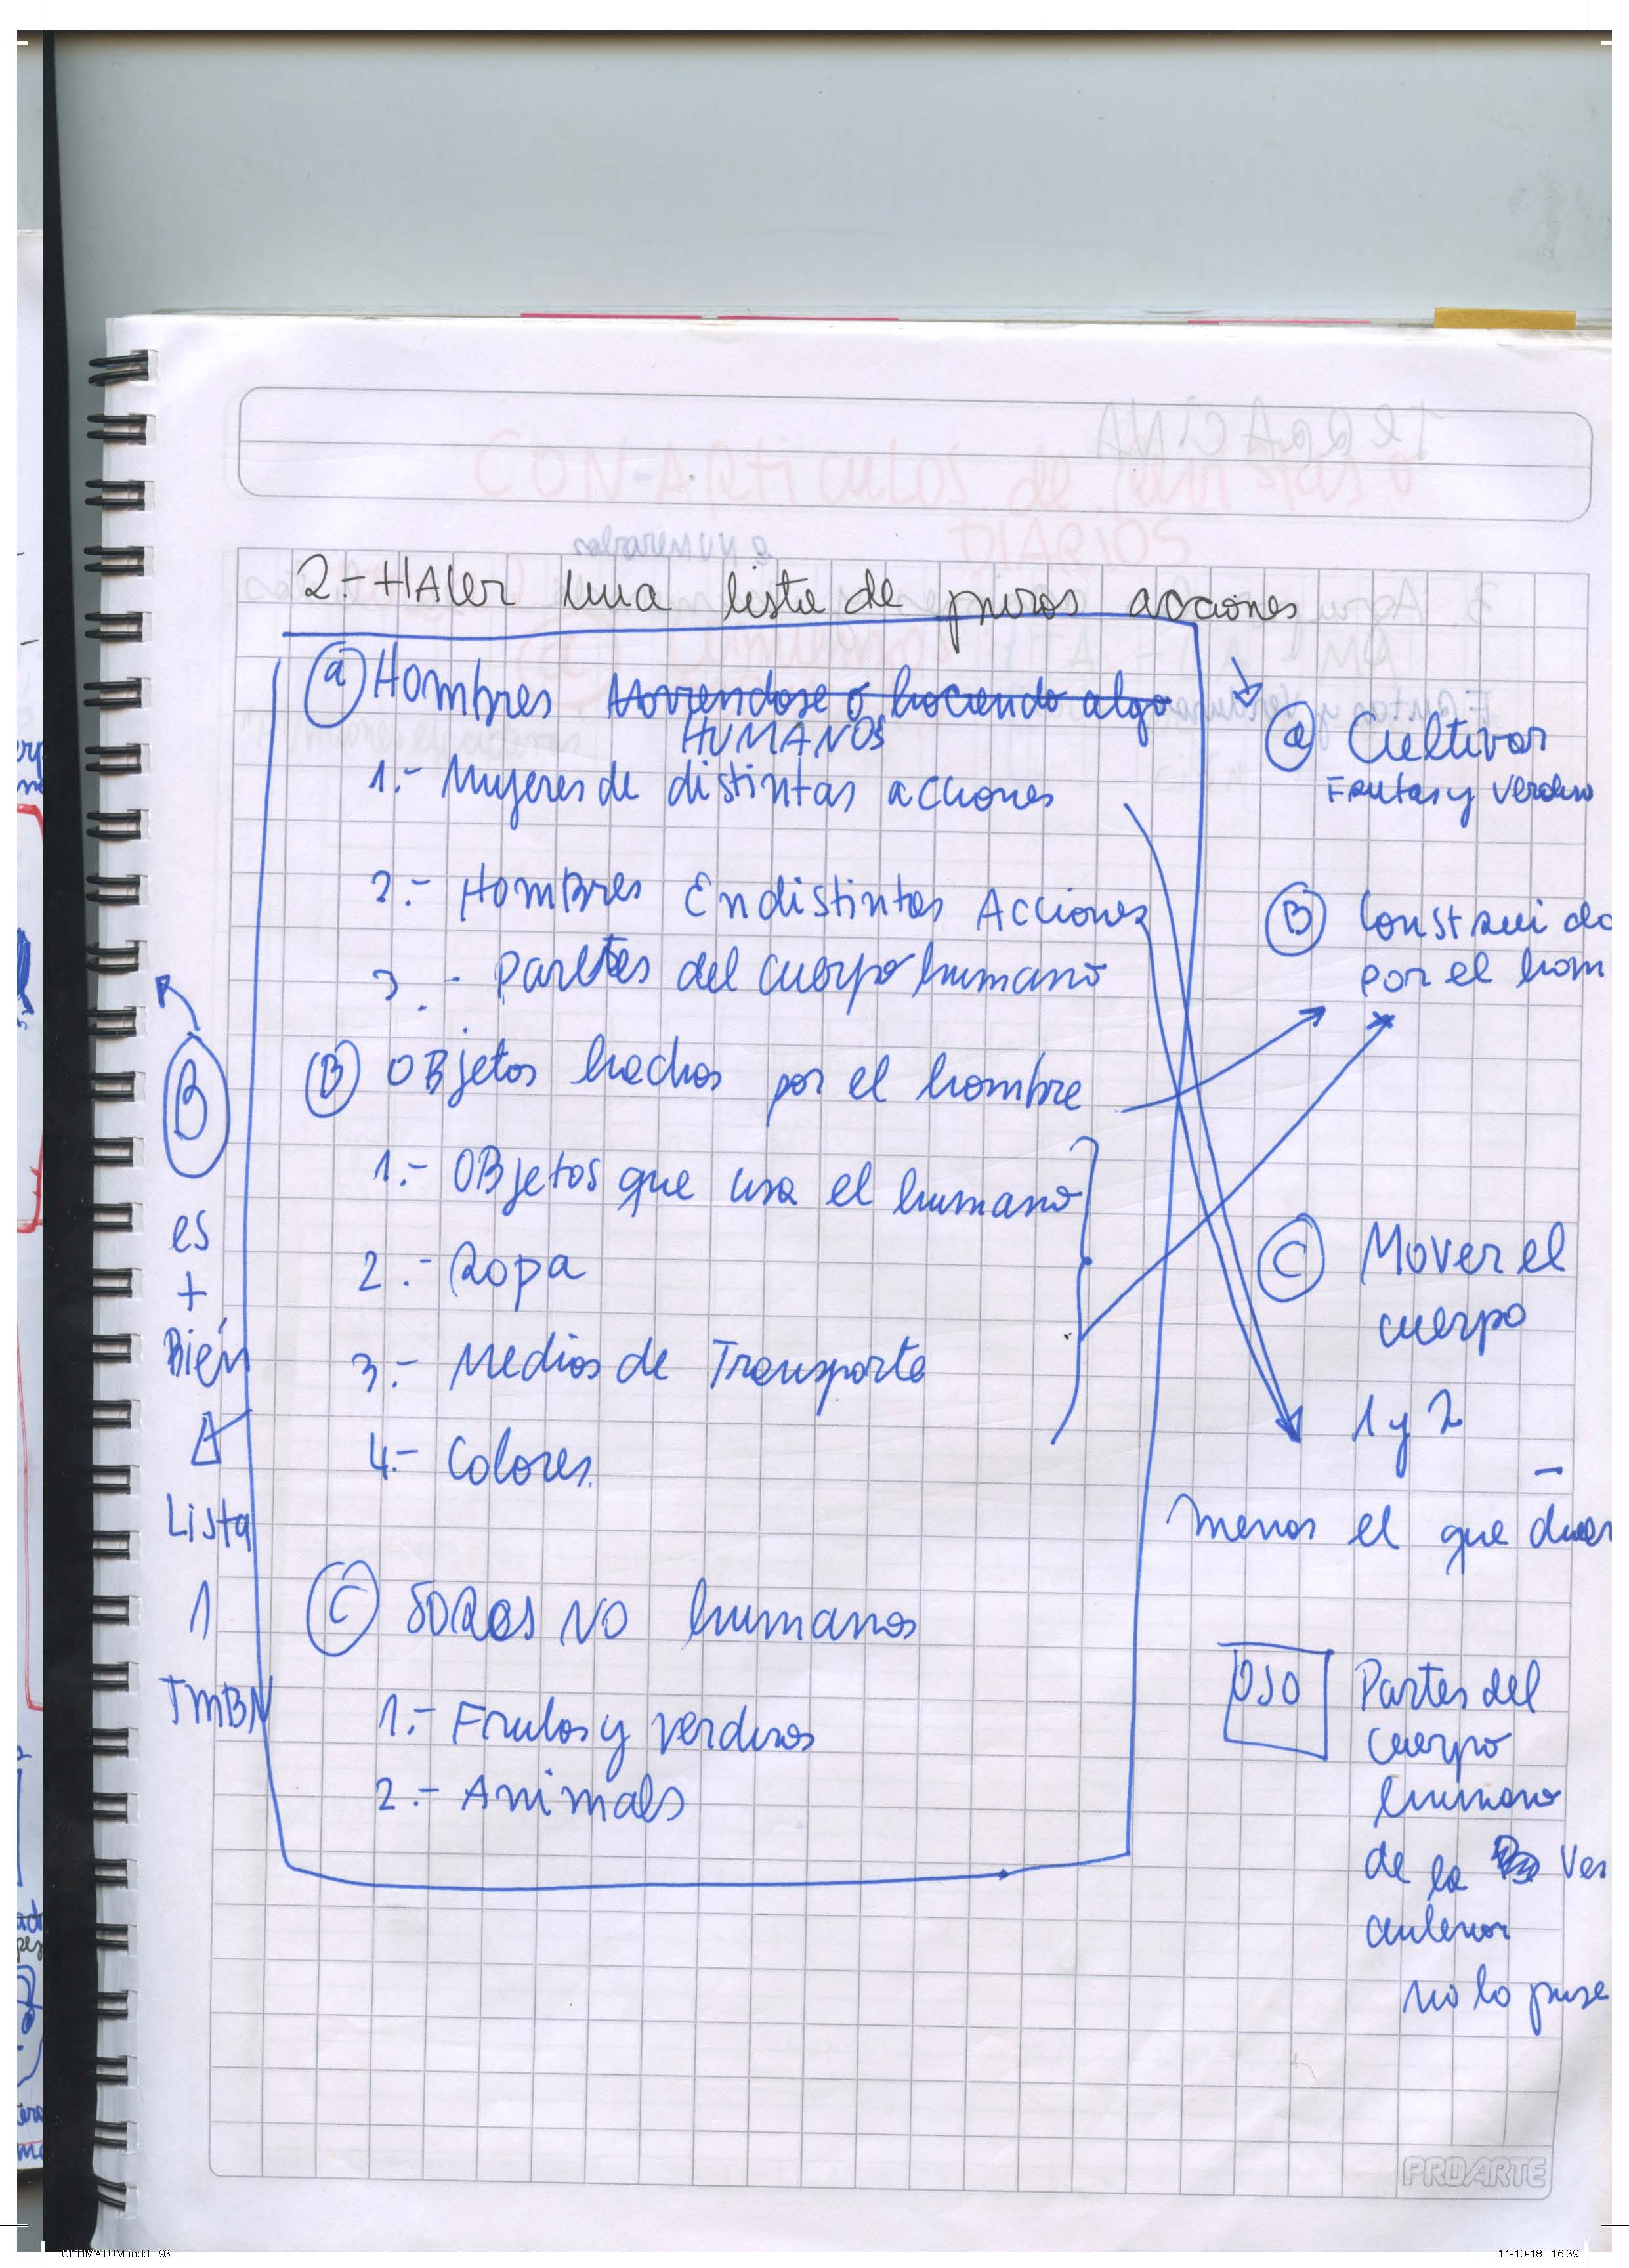 2.- HAcer una lista de puros acciones
a Hombres Moviendose o haciendo algo
HUMANOS
1.- Mujeres de distintas acciones
2.- Hombres En distintas Acciones
3.- Partes del cuerpo humano
B Objetos hechos por el hombre
1.- OBjetos que usa el humano
2.- Ropa
3.- Medios de Transporte
4.- Colores.
C no humanos
1.- Frutas y verduras
2.- Animals
B
es
+
Bién
A
Lista
1
TMBN
a Cultivar
Frutas y Verduras
B Construido
por el hom
C Mover el
cuerpo
1 y 2
menos el que duer
OJO Partes del
cuerpo
humano
de la Ves
anterior
no lo puse
PROARTE
ULTIMATUM.indd 93
11-10-18 16:39